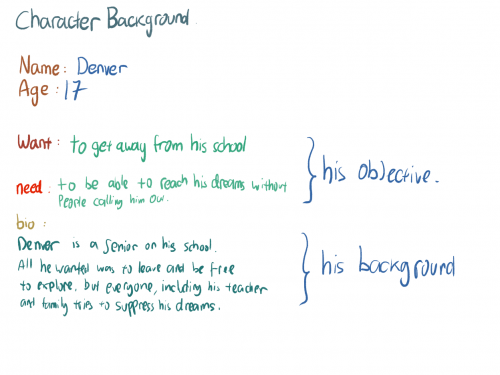 Character Background
Name: Denver
Age: 17
Want: to get away from his school
need: to be able to reach his dreams without
People calling him out.
} his objective.
bio:
Denver is a senior on his school.
All he wanted was to leave and be free
to explore. but everyone, including his teacher
and family tries to suppress his dreams.
} his background